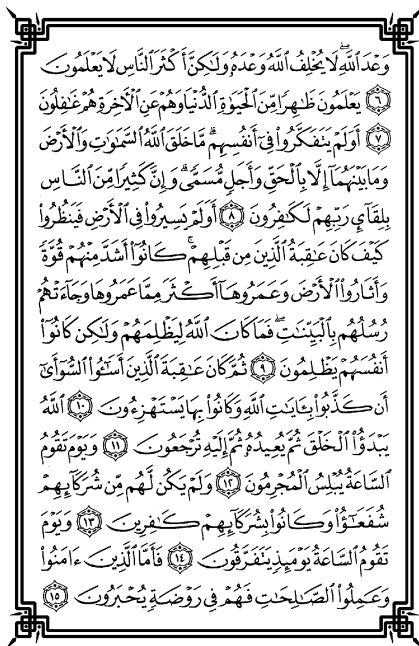 وَعْدَ ٱللَّهِ ۖ لَا يُخْلِفُ ٱللَّهُ وَعْدَهُۥ وَلَٰكِنَّ أَكْثَرَ ٱلنَّاسِ لَا يَعْلَمُونَ
۝٦ يَعْلَمُونَ ظَٰهِرًا مِّنَ ٱلْحَيَوٰةِ ٱلدُّنْيَا وَهُمْ عَنِ ٱلْءَاخِرَةِ هُمْ غَٰفِلُونَ
۝٧ أَوَلَمْ يَتَفَكَّرُوا۟ فِىٓ أَنفُسِهِم ۗ مَّا خَلَقَ ٱللَّهُ ٱلسَّمَٰوَٰتِ وَٱلْأَرْضَ
وَمَا بَيْنَهُمَآ إِلَّا بِٱلْحَقِّ وَأَجَلٍ مُّسَمًّى ۗ وَإِنَّ كَثِيرًا مِّنَ ٱلنَّاسِ
بِلِقَآئِ رَبِّهِمْ لَكَٰفِرُونَ ۝٨ أَوَلَمْ يَسِيرُوا۟ فِى ٱلْأَرْضِ فَيَنظُرُوا۟
كَيْفَ كَانَ عَٰقِبَةُ ٱلَّذِينَ مِن قَبْلِهِمْ ۚ كَانُوٓا۟ أَشَدَّ مِنْهُمْ قُوَّةً
وَأَثَارُوا۟ ٱلْأَرْضَ وَعَمَرُوهَآ أَكْثَرَ مِمَّا عَمَرُوهَا وَجَآءَتْهُمْ
رُسُلُهُم بِٱلْبَيِّنَٰتِ ۖ فَمَا كَانَ ٱللَّهُ لِيَظْلِمَهُمْ وَلَٰكِن كَانُوٓا۟
أَنفُسَهُمْ يَظْلِمُونَ ۝٩ ثُمَّ كَانَ عَٰقِبَةَ ٱلَّذِينَ أَسَٰٓـُٔوا۟ ٱلسُّوٓأَىٰٓ
أَن كَذَّبُوا۟ بِـَٔايَٰتِ ٱللَّهِ وَكَانُوا۟ بِهَا يَسْتَهْزِءُونَ ۝١٠ ٱللَّهُ
يَبْدَؤُا۟ ٱلْخَلْقَ ثُمَّ يُعِيدُهُۥ ثُمَّ إِلَيْهِ تُرْجَعُونَ ۝١١ وَيَوْمَ تَقُومُ
ٱلسَّاعَةُ يُبْلِسُ ٱلْمُجْرِمُونَ ۝١٢ وَلَمْ يَكُن لَّهُم مِّن شُرَكَآئِهِمْ
شُفَعَٰٓؤُا۟ وَكَانُوا۟ بِشُرَكَآئِهِمْ كَٰفِرِينَ ۝١٣ وَيَوْمَ
تَقُومُ ٱلسَّاعَةُ يَوْمَئِذٍ يَتَفَرَّقُونَ ۝١٤ فَأَمَّا ٱلَّذِينَ ءَامَنُوا۟
وَعَمِلُوا۟ ٱلصَّٰلِحَٰتِ فَهُمْ فِى رَوْضَةٍ يُحْبَرُونَ ۝١٥